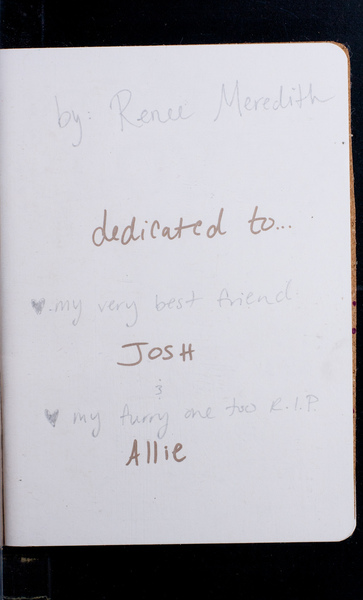 by: Renee Meredith
dedicated to...
♥ my very best friend
JOSH
&
♥ my furry one too R.I.P.
Allie